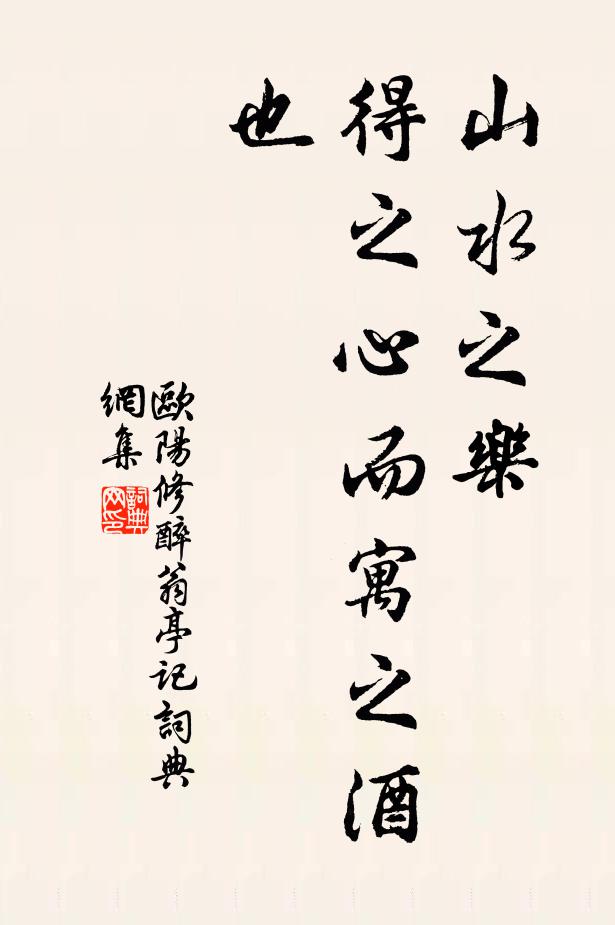 山水之樂
得之心而寓之酒
也
歐陽修醉翁亭記詞典
網集
詞典
网印